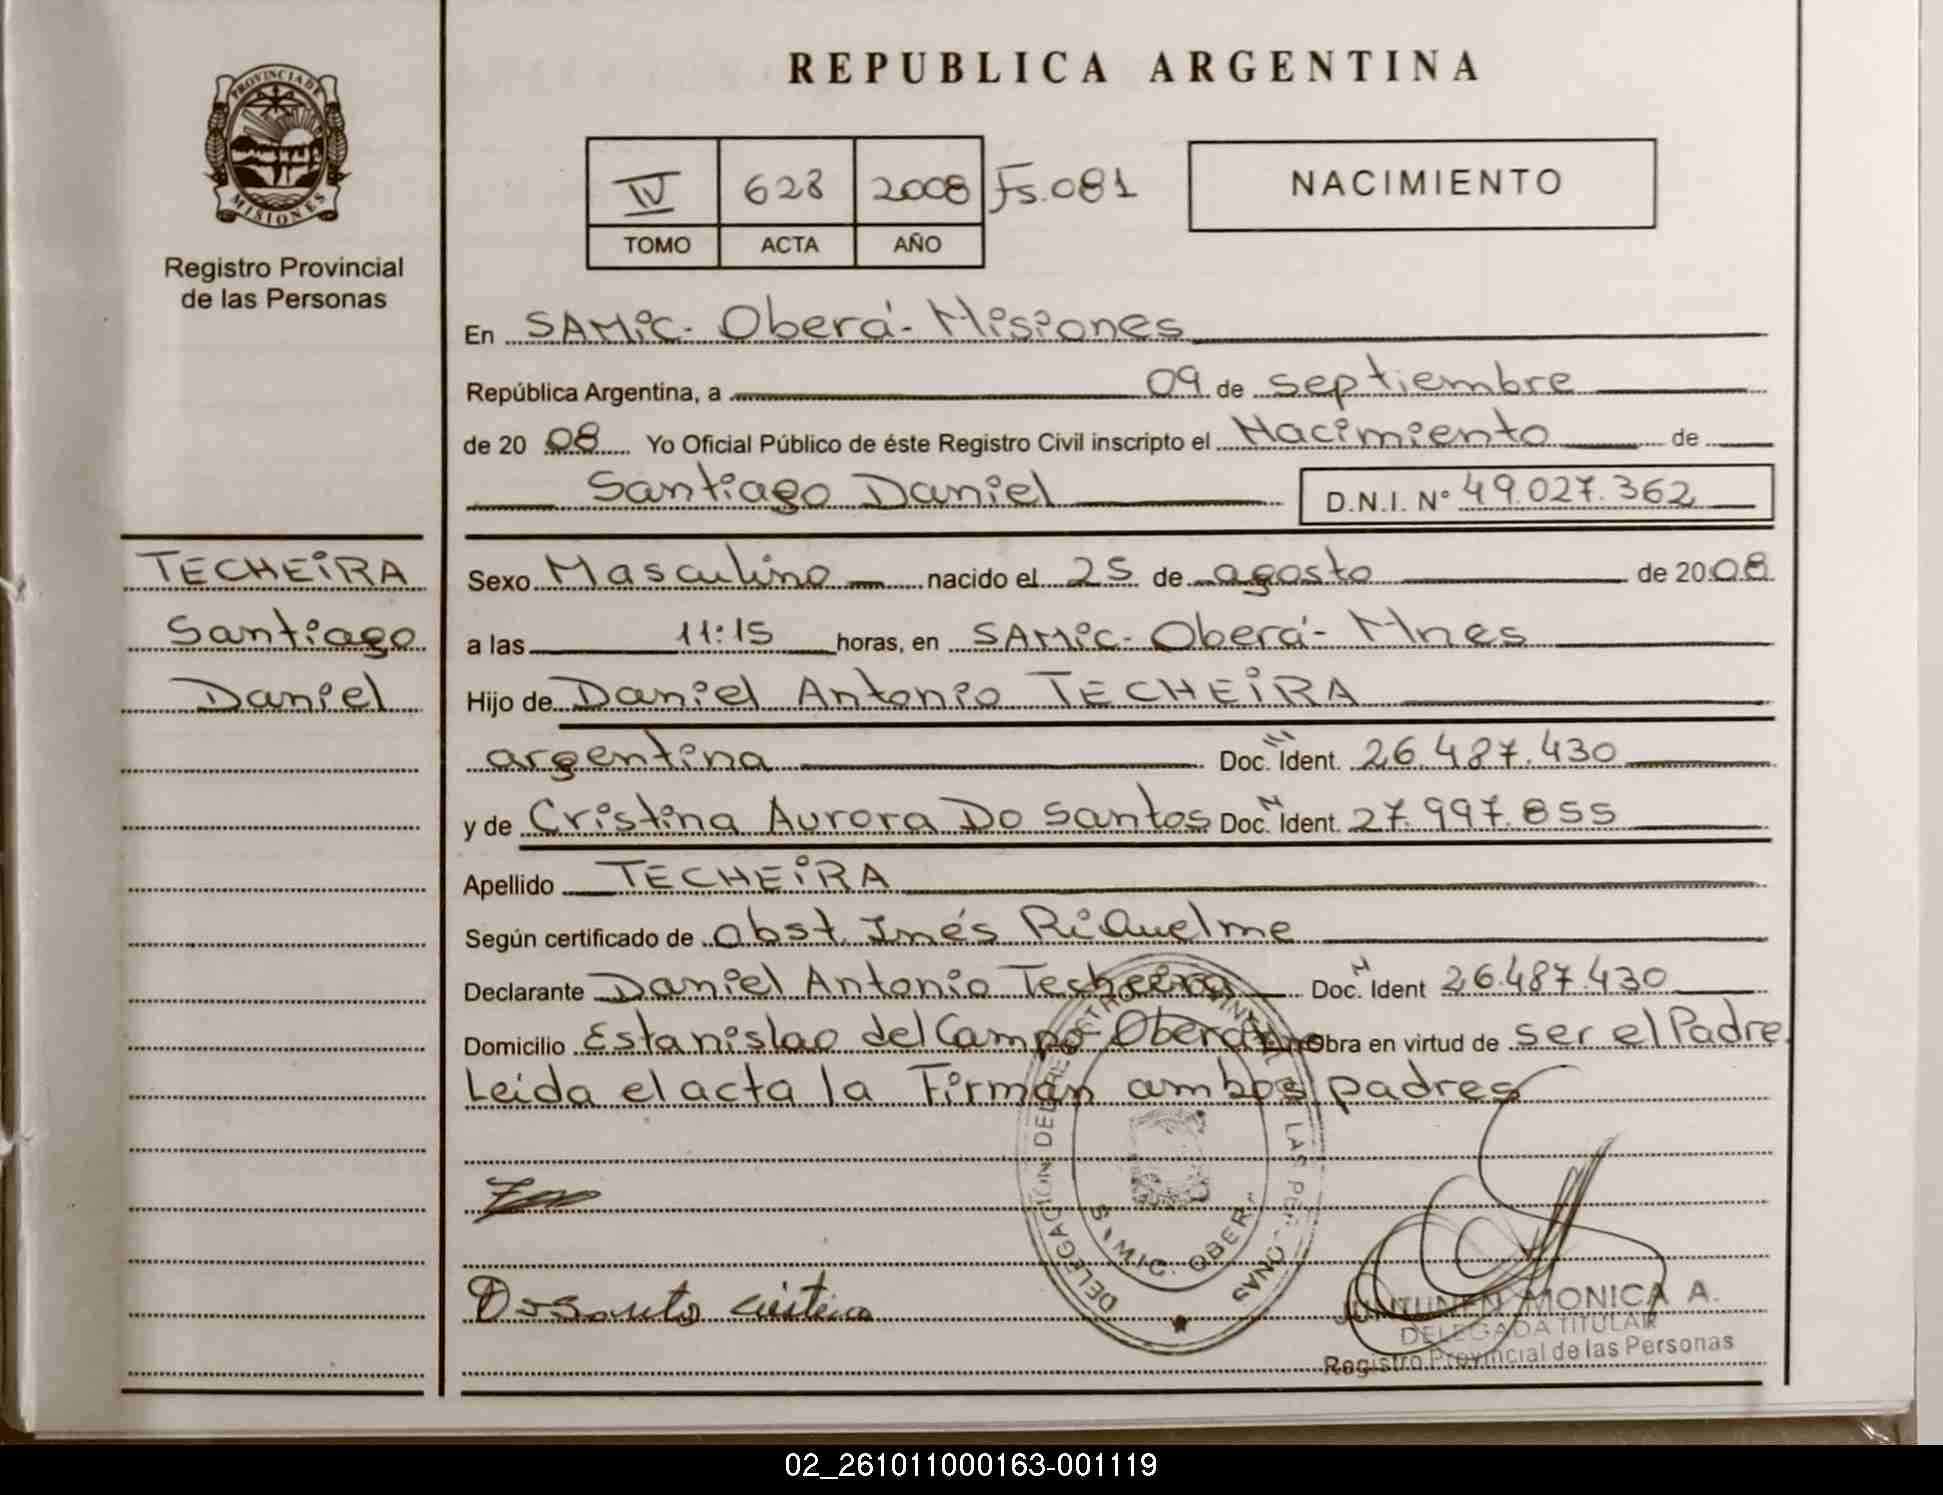 PROVINCIA DE
MISIONES
Registro Provincial
de las Personas
TECHEIRA
Santiago
Daniel
REPUBLICA ARGENTINA
IV 628 2008 Fs.081
TOMO ACTA AÑO
NACIMIENTO
En SAMiC - Oberá - Misiones
República Argentina, a 09 de septiembre
de 20 08 Yo Oficial Público de éste Registro Civil inscripto el Nacimiento de
Santiago Daniel D.N.I. Nº 49.027.362
Sexo Masculino nacido el 25 de agosto de 2008
a las 11:15 horas, en SAMiC - Oberá - Mnes
Hijo de Daniel Antonio TECHEiRA
argentina Doc. Ident. 26.487.430
y de Cristina Aurora Do Santos Doc. Ident. 27.997.855
Apellido TECHEiRA
Según certificado de Obst. Inés RiQuelme
Declarante Daniel Antonio Techeira Doc. Ident 26.487.430
Domicilio Estanislao del Campo - Oberá Obra en virtud de ser el Padre.
Leída el acta la Firman ambos padres
DELEGACIÓN DEL REGISTRO PROVINCIAL DE LAS PERSONAS
SAMIC. OBERÁ
MONICA A.
DELEGADA TITULAR
Registro Provincial de las Personas
02_261011000163-001119